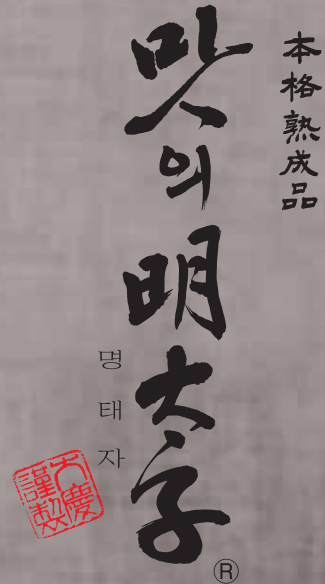 本格熟成品
맛의明太子
명태자
®
大慶
謹製